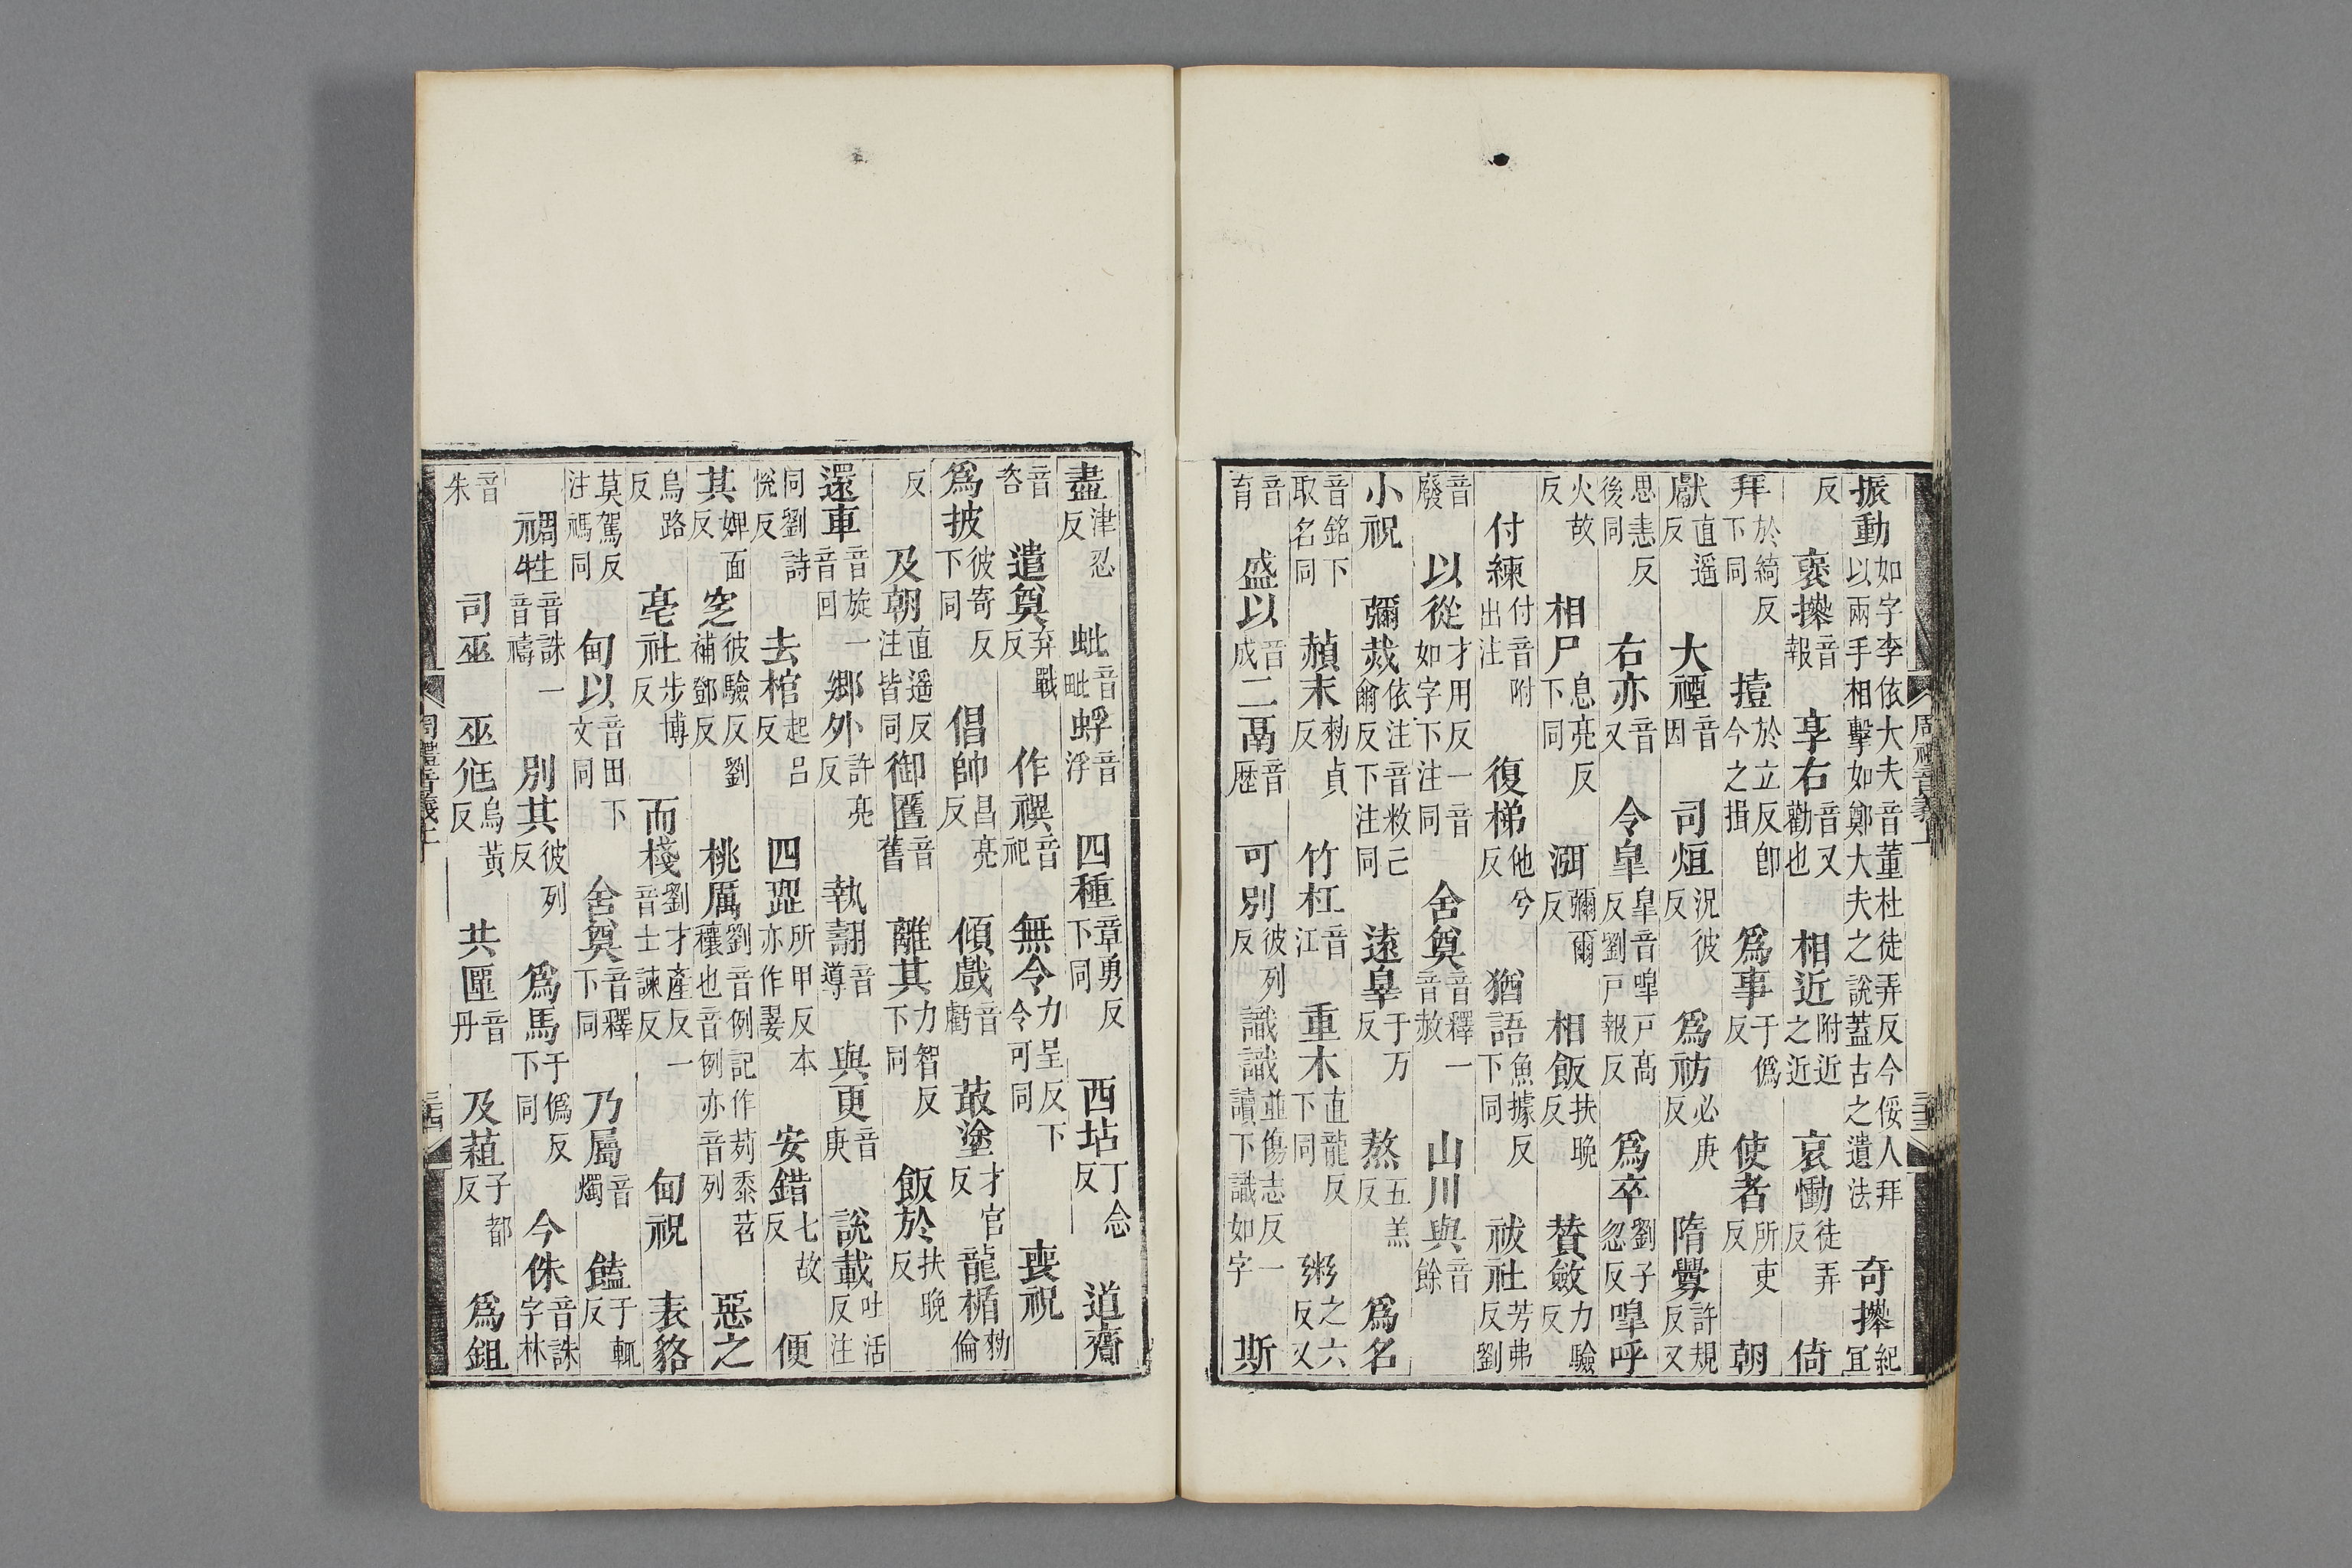 振動如字李依大夫音董杜徒弄反今倭人拜以兩手相擊如鄭大夫之說蓋古之遺法 奇𢷎紀宜
反 褒𢷎音報 享右音又勸也 相近附近之近 哀慟徒弄反 倚
拜於綺反下同 撎於立反卽今之揖 爲事于僞反 使者所吏反 朝
獻直遥反 大禋音因 司烜況彼反 爲祊必庚反 隋釁許規反又
思恚反後同 右亦音又 令臯臯音嘷戸髙反劉戸報反 爲卒劉子忽反 嘷呼
火故反 相尸息亮反下同 渳彌爾反 相飯扶晚反 賛斂力驗反
付練付音附出注 復梯他兮反 猶語魚據反下同 祓社芳弗反劉
音廢 以從才用反一音如字下注同 舍奠音釋一音赦 山川與音餘
小祝 彌烖依注音敉亡爾反下注同 遠辠于万反 熬五羔反 爲名
音銘下取名同 赬末勑貞反 竹杠音江 重木直龍反下同 粥之六反又
音育 盛以音成 二鬲音歷 可別彼列反 識識並傷志反一讀下識如字 斯
周禮音義上 三十三
盡津忍反 蚍音毗 蜉音浮 四種章勇反下同 西坫丁念反 道齎
音咨 遣奠弃戰反 作禩音祀 無令力呈反下令可同 喪祝
爲披彼寄反下同 倡帥昌亮反 傾戲音虧 菆塗才官反 龍楯勑倫
反 及朝直遥反注皆同 御匶音舊 離其力智反下同 飯於扶晚反
還車音旋一音回 鄉外許亮反 執翿音導 與更音庚 說載吐活反注
同劉詩悅反 去棺起吕反 四翣所甲反本亦作翣 安錯七故反 便
其婢面反 窆彼驗反劉補鄧反 桃厲劉音例記作茢黍苕穰也音例亦音列 惡之
烏路反 亳社步博反 而棧劉才產反一音士諫反 甸祝 表貉
莫駕反注禡同 甸以音田下文同 舍奠音釋下同 乃屬音燭 饁于輒反
禂牲音誅一音禱 別其彼列反 爲馬于僞反下同 今侏音誅字林
音朱 司巫 巫尪烏黃反 共匰音丹 及蒩子都反 爲鉏
周禮音義上 三十四